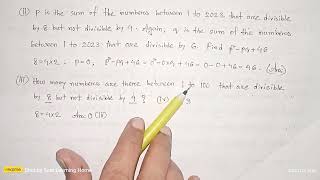 (II) P is the sum of the numbers between 1 to 2023 that are divisible
by 8 but not divisible by 4. Again; q is the sum of the numbers
between 1 to 2023 that are divisible by 6. Find P²-Pq+4q
8=4×2 . P=0, P²-Pq+4q = 0²-0×q+4q = 0-0+4q = 4q. (Ans)
(III) How many numbers are there between 1 to 100 that are divisible
by 8 but not divisible by 4 ? (IV) 9
8=4×2 Ans: 0
Learning Home